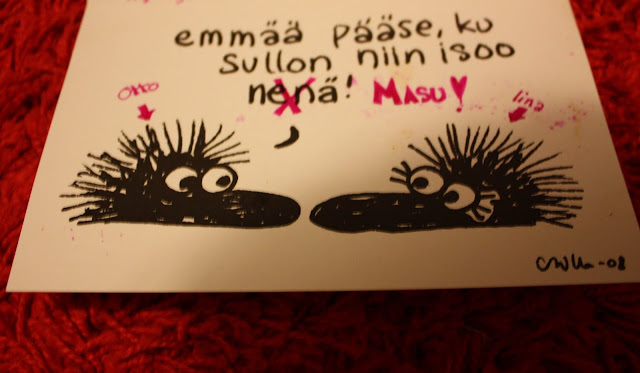 emmää pääse, ku
sullon niin isoo
nenä! MASU!
Okko
Iina
-08